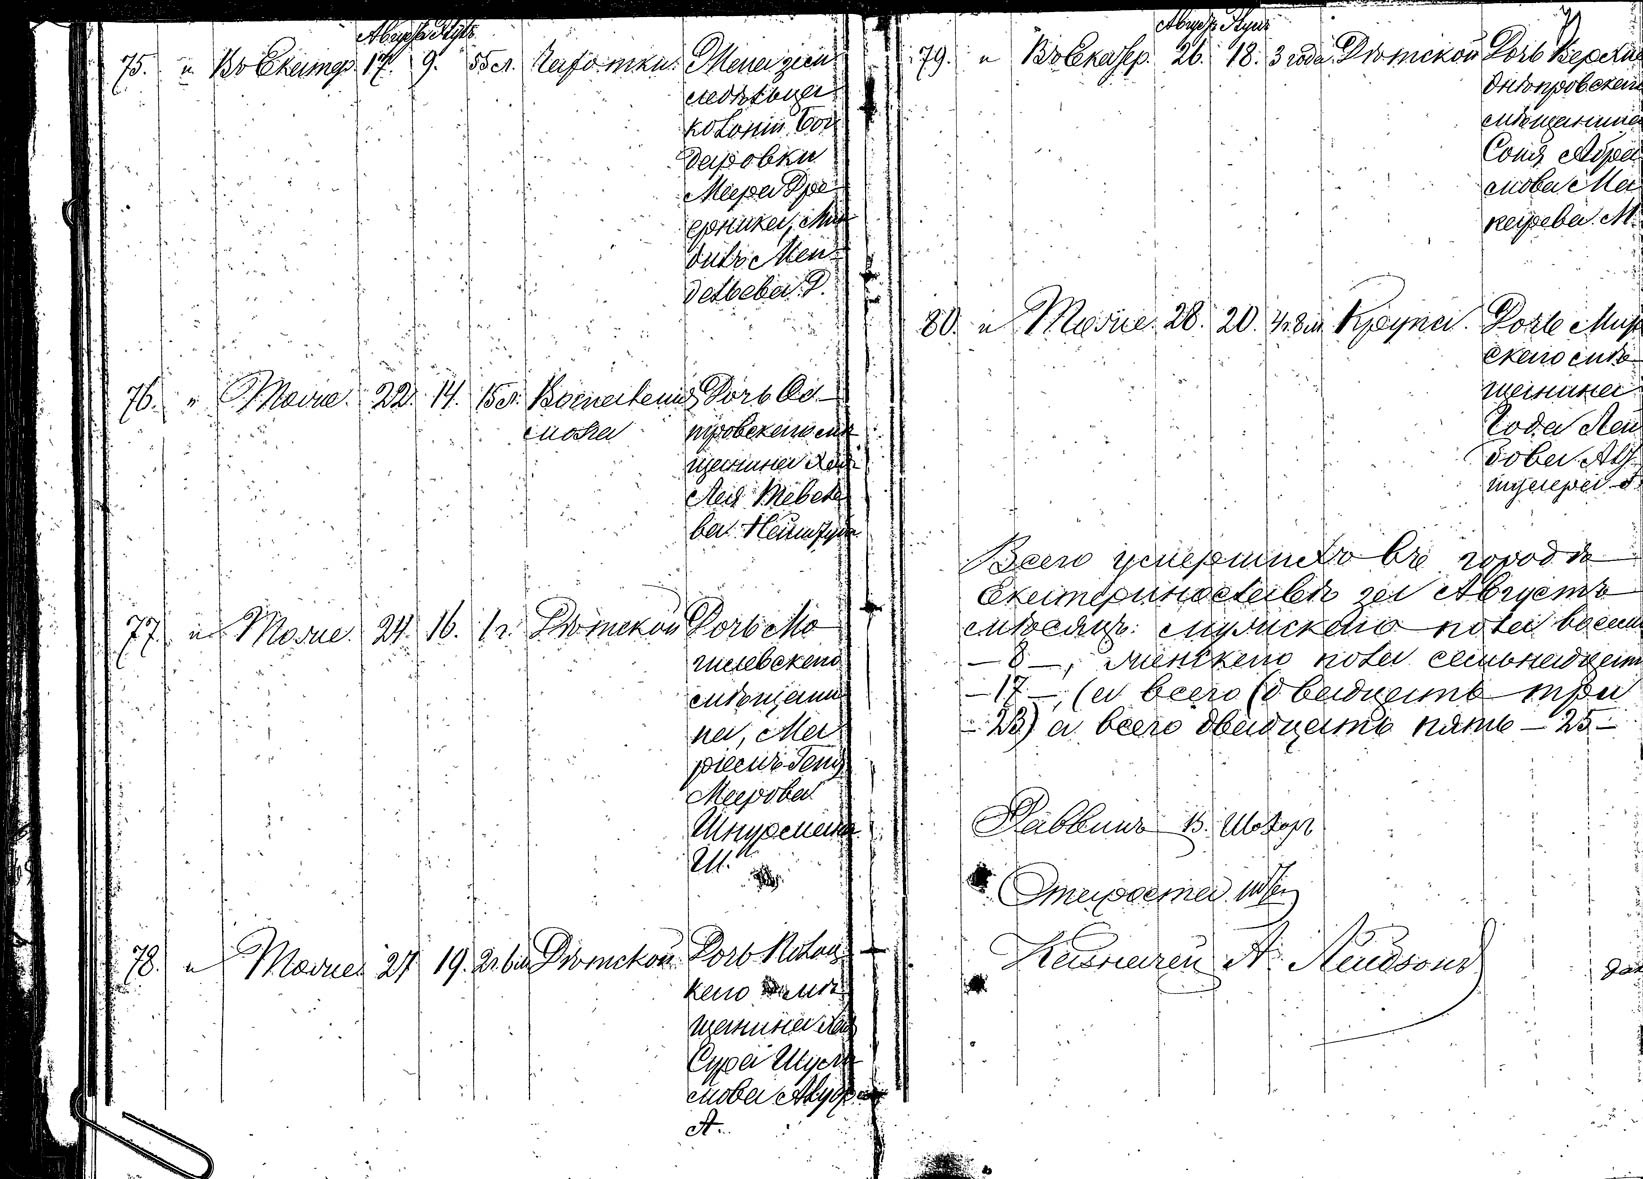 Август
75. " Въ Екатер. 17. 9. 55 л. Чахотки. Жена земледѣльца
колоніи Бог
даровки
Меера Дре
ерника, Мин
диль Мен-
делѣева Д.
76. " Тоже. 22. 14. 15 л. Воспаленія Дочь Ос-
мозга
тровскаго мѣ
щанина Хая
Лея Тевеле
ва
77. " Тоже. 24. 16. 1 г. Дѣтской Дочь Мо
гилевскаго
мѣщани
на, Ма
ріемъ Геня
Меерова
Шнурмана
Ш.
78. " Тоже. 27 19. 2 г. 6 м. Дѣтской. Дочь Полоц
каго мѣ
щанина Хая
Сура Шули
мова
А.
Август
79. " Въ Екатер. 26. 18. 3 года Дѣтской Дочь Верхне
днѣпровскаго
мѣщанина
Соня Абра
мова Ма
карева М.
80. " Тоже. 28. 20. 4 г. 8 м. Крупа. Дочь Мир
скаго мѣ
щанина
Года Лей
бова Аль
тулера А.
Всего умершихъ въ городѣ
Екатеринославѣ за Августъ
мѣсяцъ: мужскаго пола восемь
— 8 —, женскаго пола семьнадцать
— 17 —, (а всего (двадцать три
— 23) а всего двадцать пять — 25 —
Раввинъ В. Шохоръ
Староста
Казначей А. Лейдзонъ